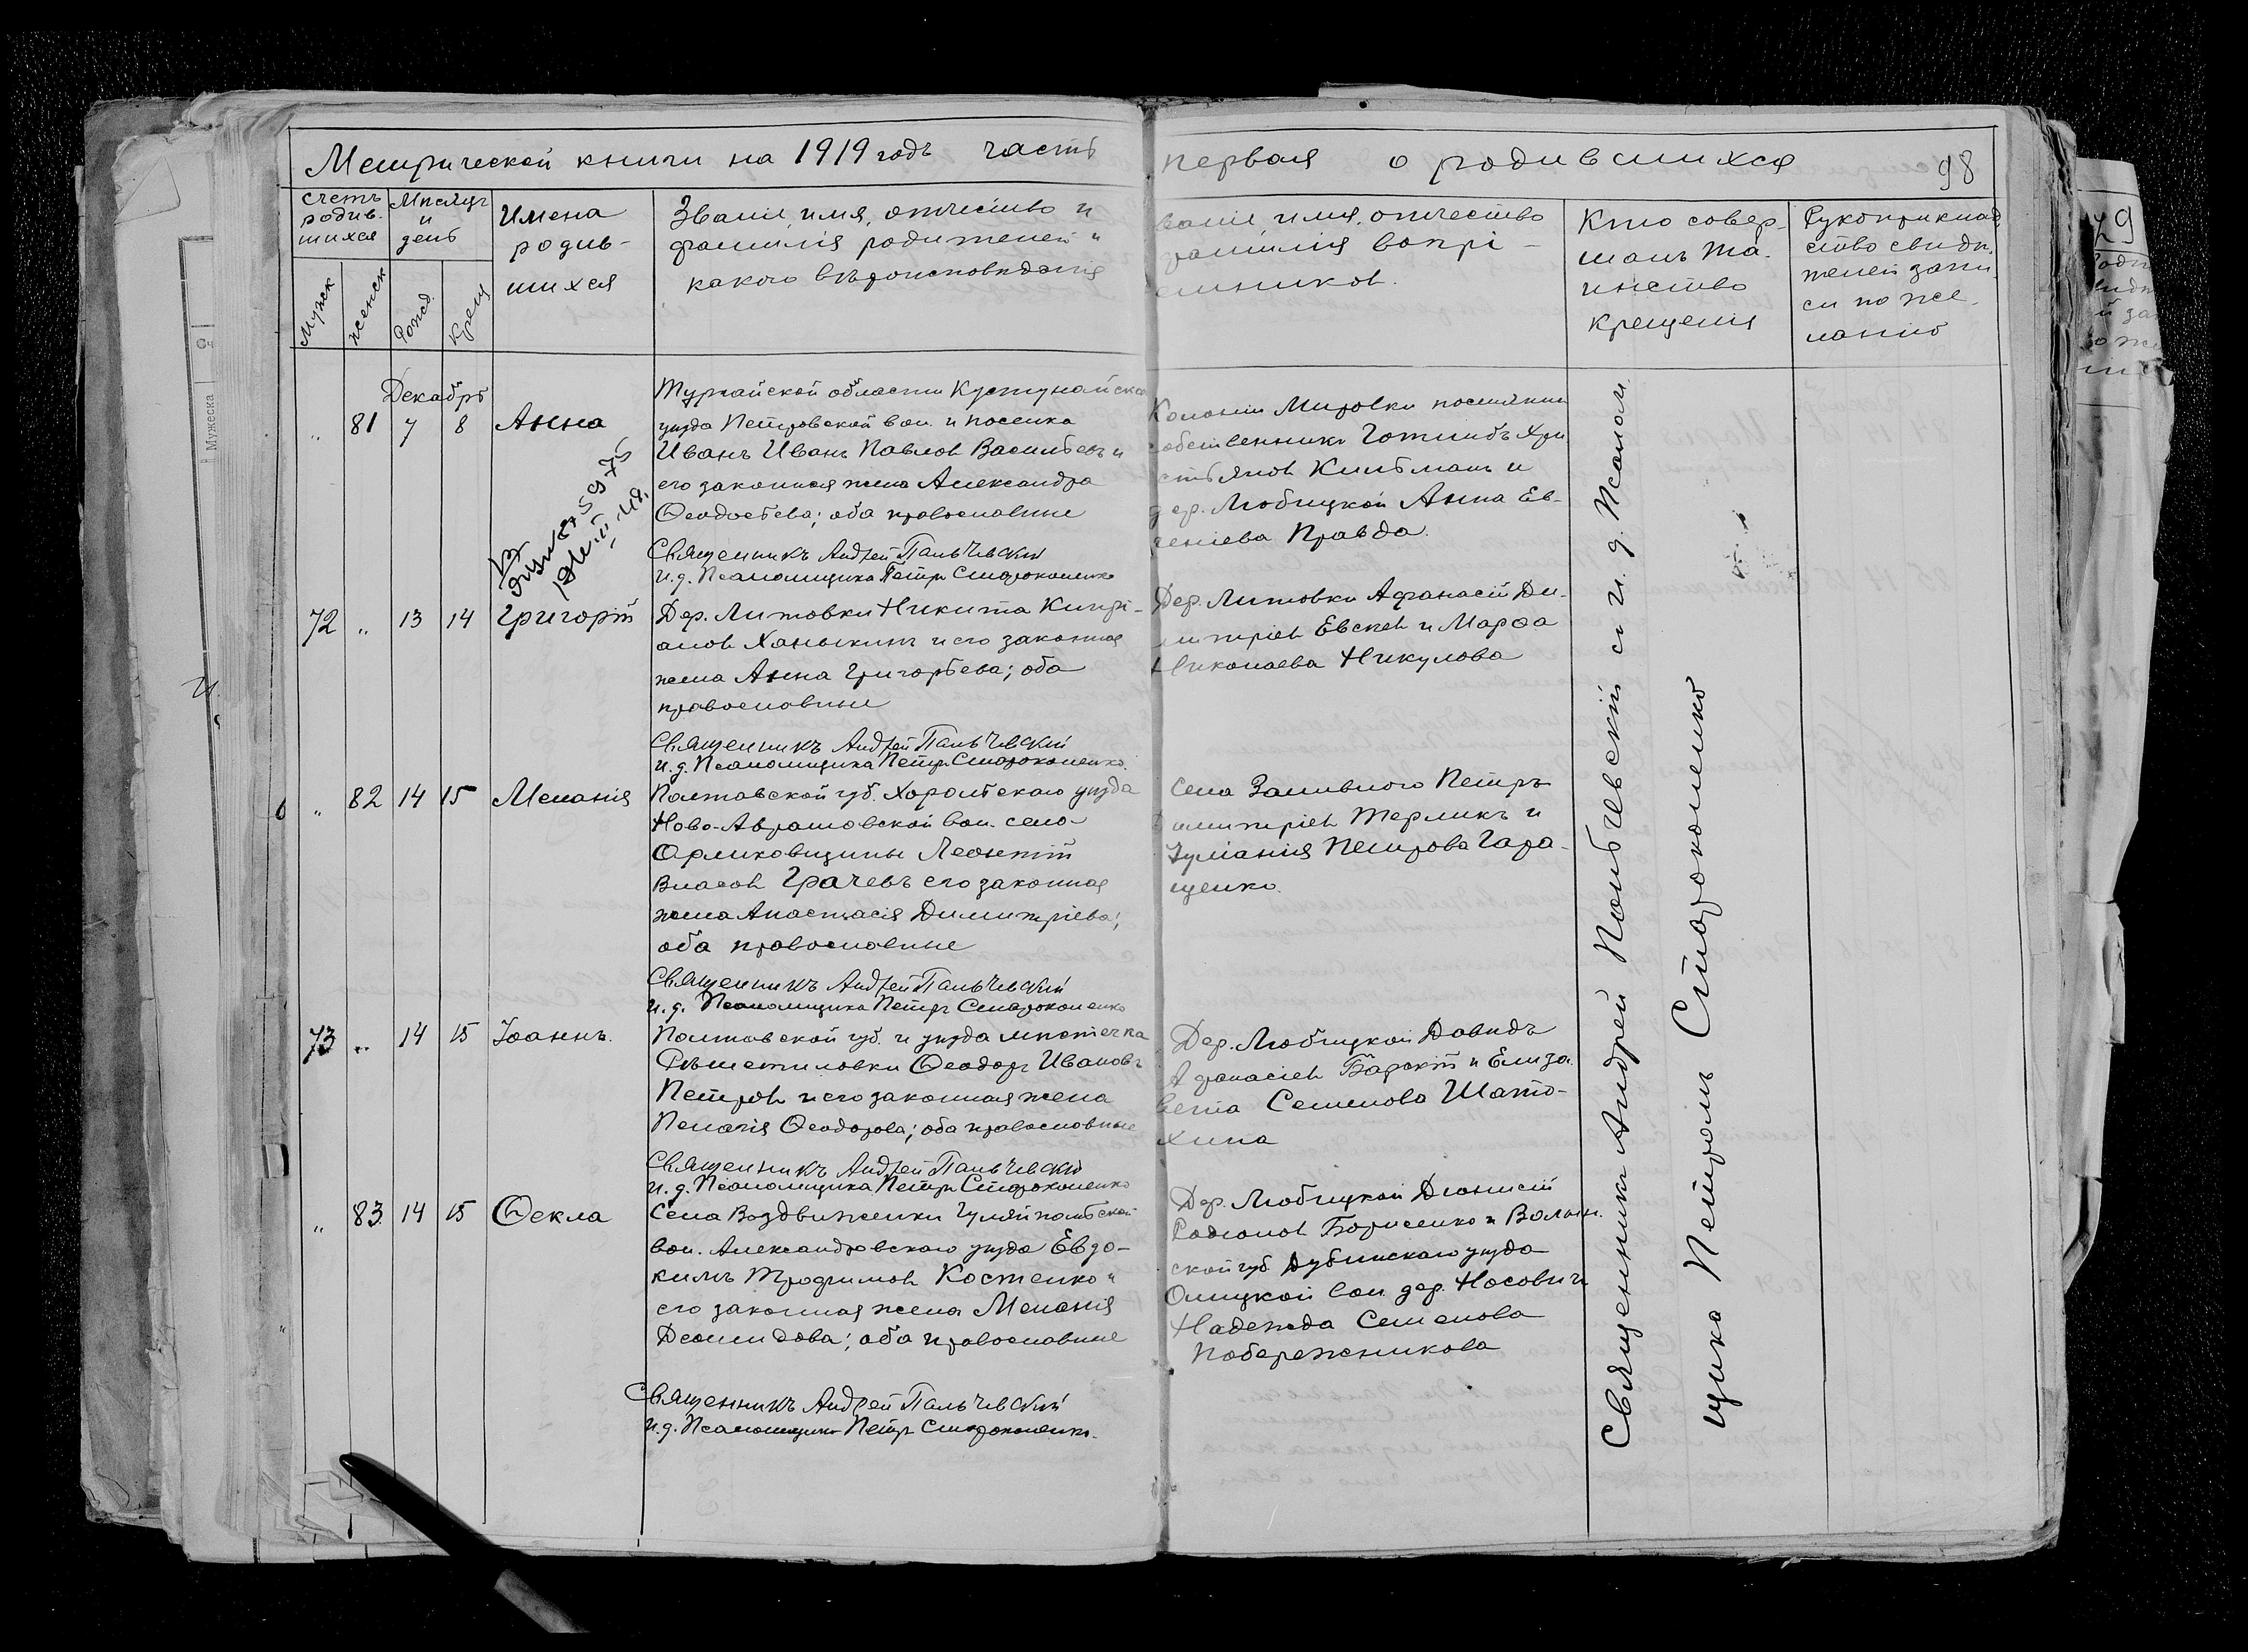 Метрической книги на 1919 годъ часть
первая о родившихся
98
Счетъ родив- шихся
Мѣсяцъ и день
Имена родив- шихся
Званіе, имя, отчество и фамилія родителей и какого вѣроисповѣданія
ваніе, имя, отчество фамилія воспрі- емниковъ.
Кто совер- шалъ та- инство крещенія
Рукоприклад ство свидѣ- телей запи- си по же- ланію
Мужск
женск
Рожд.
Крещ
Декабрь
„ 81 7 8 Анна
Тургайской области Кустунайска
уѣзда Петровской вол. и поселка
Иванъ Иванъ Павловъ Васильевъ и
его законная жена Александра
Ѳеодосьева; оба православные
Священникъ Андрей Пальчевскій
И.д. Псаломщика Петръ Староконенко
Колоніи Мировки поселянинъ
собственникъ Готлибъ Хри
дер. Любицкой Анна Ев-
геніева Правда.
72 „ 13 14 Григорій
Дер. Литовки Никита Кипрі-
ановъ Ханыкинъ и его законная
жена Анна Григорьева; оба
православные
Священникъ Андрей Пальчевскій
И.д. Псаломщика Петръ Староконенко.
Дер. Литовки Афанасій Ди-
митріевъ Евсеев и Марѳа
Николаева Никулова
„ 82 14 15 Меланія
Полтавской губ. Хорольскаго уѣзда
Ново-Аврамовской вол. село-
Орликовщины Леонтій
Власовъ Грачевъ его законная
жена Анастасія Димитріева;
оба православные
Священникъ Андрей Пальчевскій
И.д. Псаломщика Петръ Староконенко
Села Заливного Петръ
Димитріевъ Терликъ и
Іуліанія Петрова Гара-
щенко.
73 „ 14 15 Іоаннъ.
Полтавской губ. и уѣзда мѣстечка
Рѣшетиловки Ѳеодоръ Ивановъ
Петровъ и его законная жена
Пелагія Ѳеодорова; оба православные
Священникъ Андрей Пальчевскій
И.д. Псаломщика Петръ Староконенко
Дер. Любицкой Давидъ
Афанасіевъ Барскій и Елиза
вета Семенова Шато-
хина
„ 83. 14 15 Ѳекла
Села Воздвиженки Гуляйпольской
вол. Александровскаго уѣзда Евдо-
кимъ Трофимовъ Костенко и
его законная жена Меланія
Деомидова; оба православные
Священникъ Андрей Пальчевскій
И.д. Псаломщика Петръ Староконенко.
Дер. Любицкой Діонисій
Родіоновъ Борисенко и Волын.
ской губ. Дубинскаго уѣзда
Олицкой вол. дер. Носовичи
Надежда Семенова
Побережникова
Священникъ Андрей Пальчевскій съ и. д. Псалом.
щика Петромъ Староконенко
Мужеска